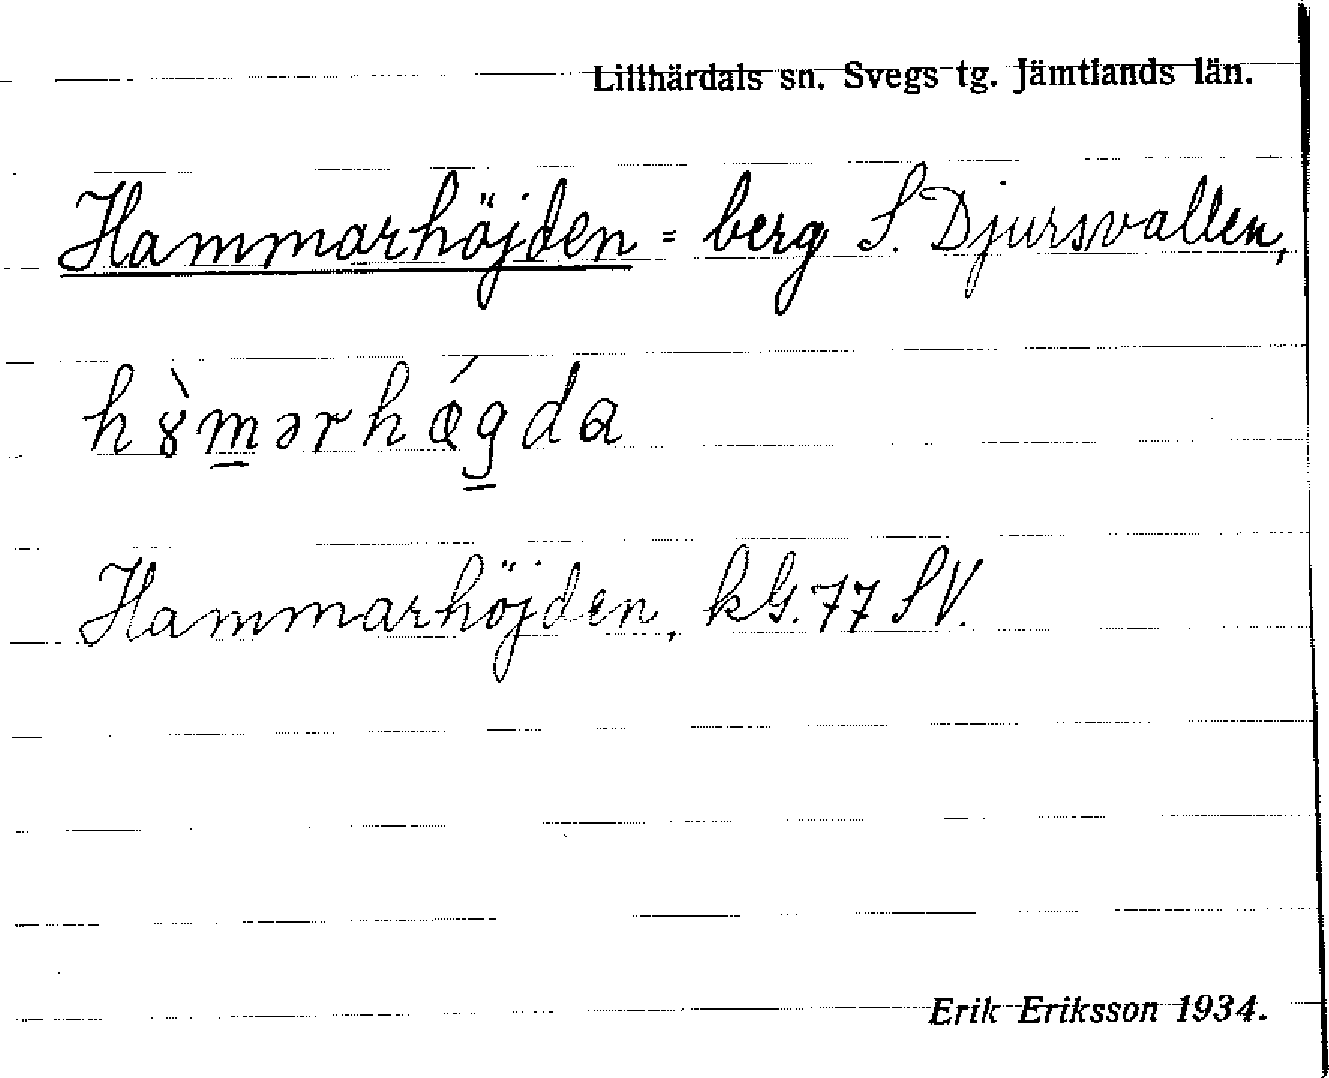 Lillhärdals sn. Svegs tg. Jämtlands län.
Hammarhöjden = berg S. Djursvallen,
hɤ̀m̲ərhǽg̲da
Hammarhöjden, kbl. 77 SV.
Erik Eriksson 1934.